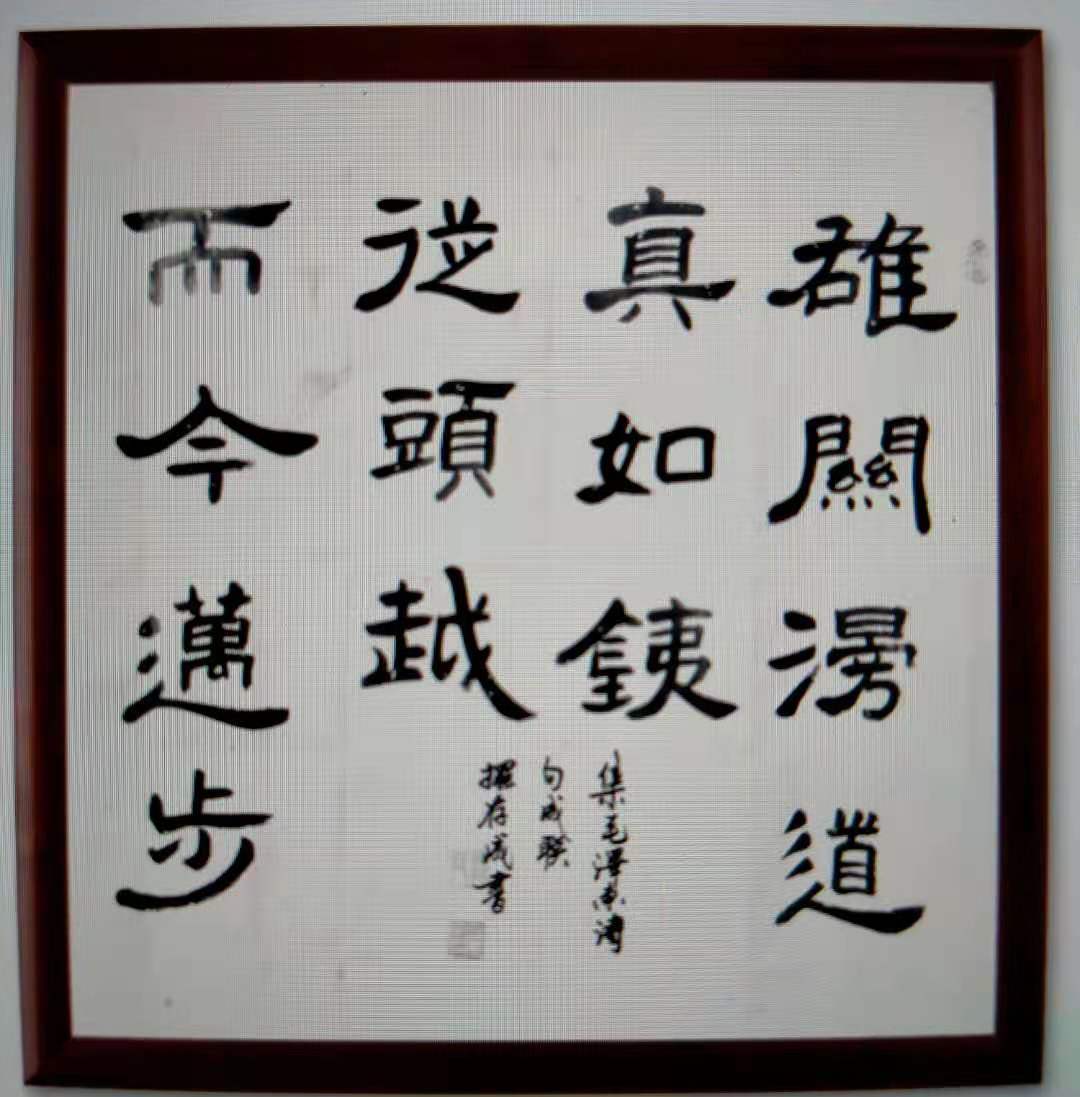 雄關漫道
真如鐵
而今邁步
從頭越
集毛澤東詩
句成聯
存成書